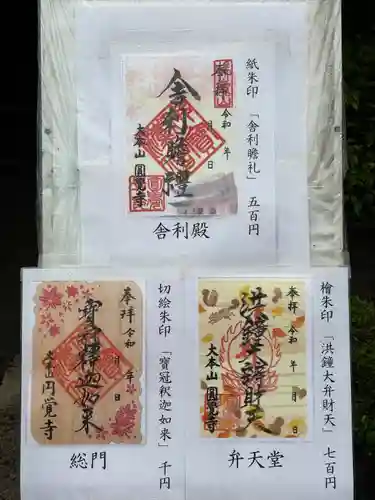 紙朱印 「舎利瞻礼」 五百円
奉拝
令和 年 月 日
舎利瞻禮
大本山 圓覺寺
舎利殿
檜朱印 「洪鐘大弁財天」 七百円
奉拝 令和 年 月 日
洪鐘大弁財天
大本山 圓覺寺
弁天堂
切絵朱印 「宝冠釈迦如来」 千円
奉拝 令和 年 月 日
寶冠釋迦如来
大本山 円覚寺
総門